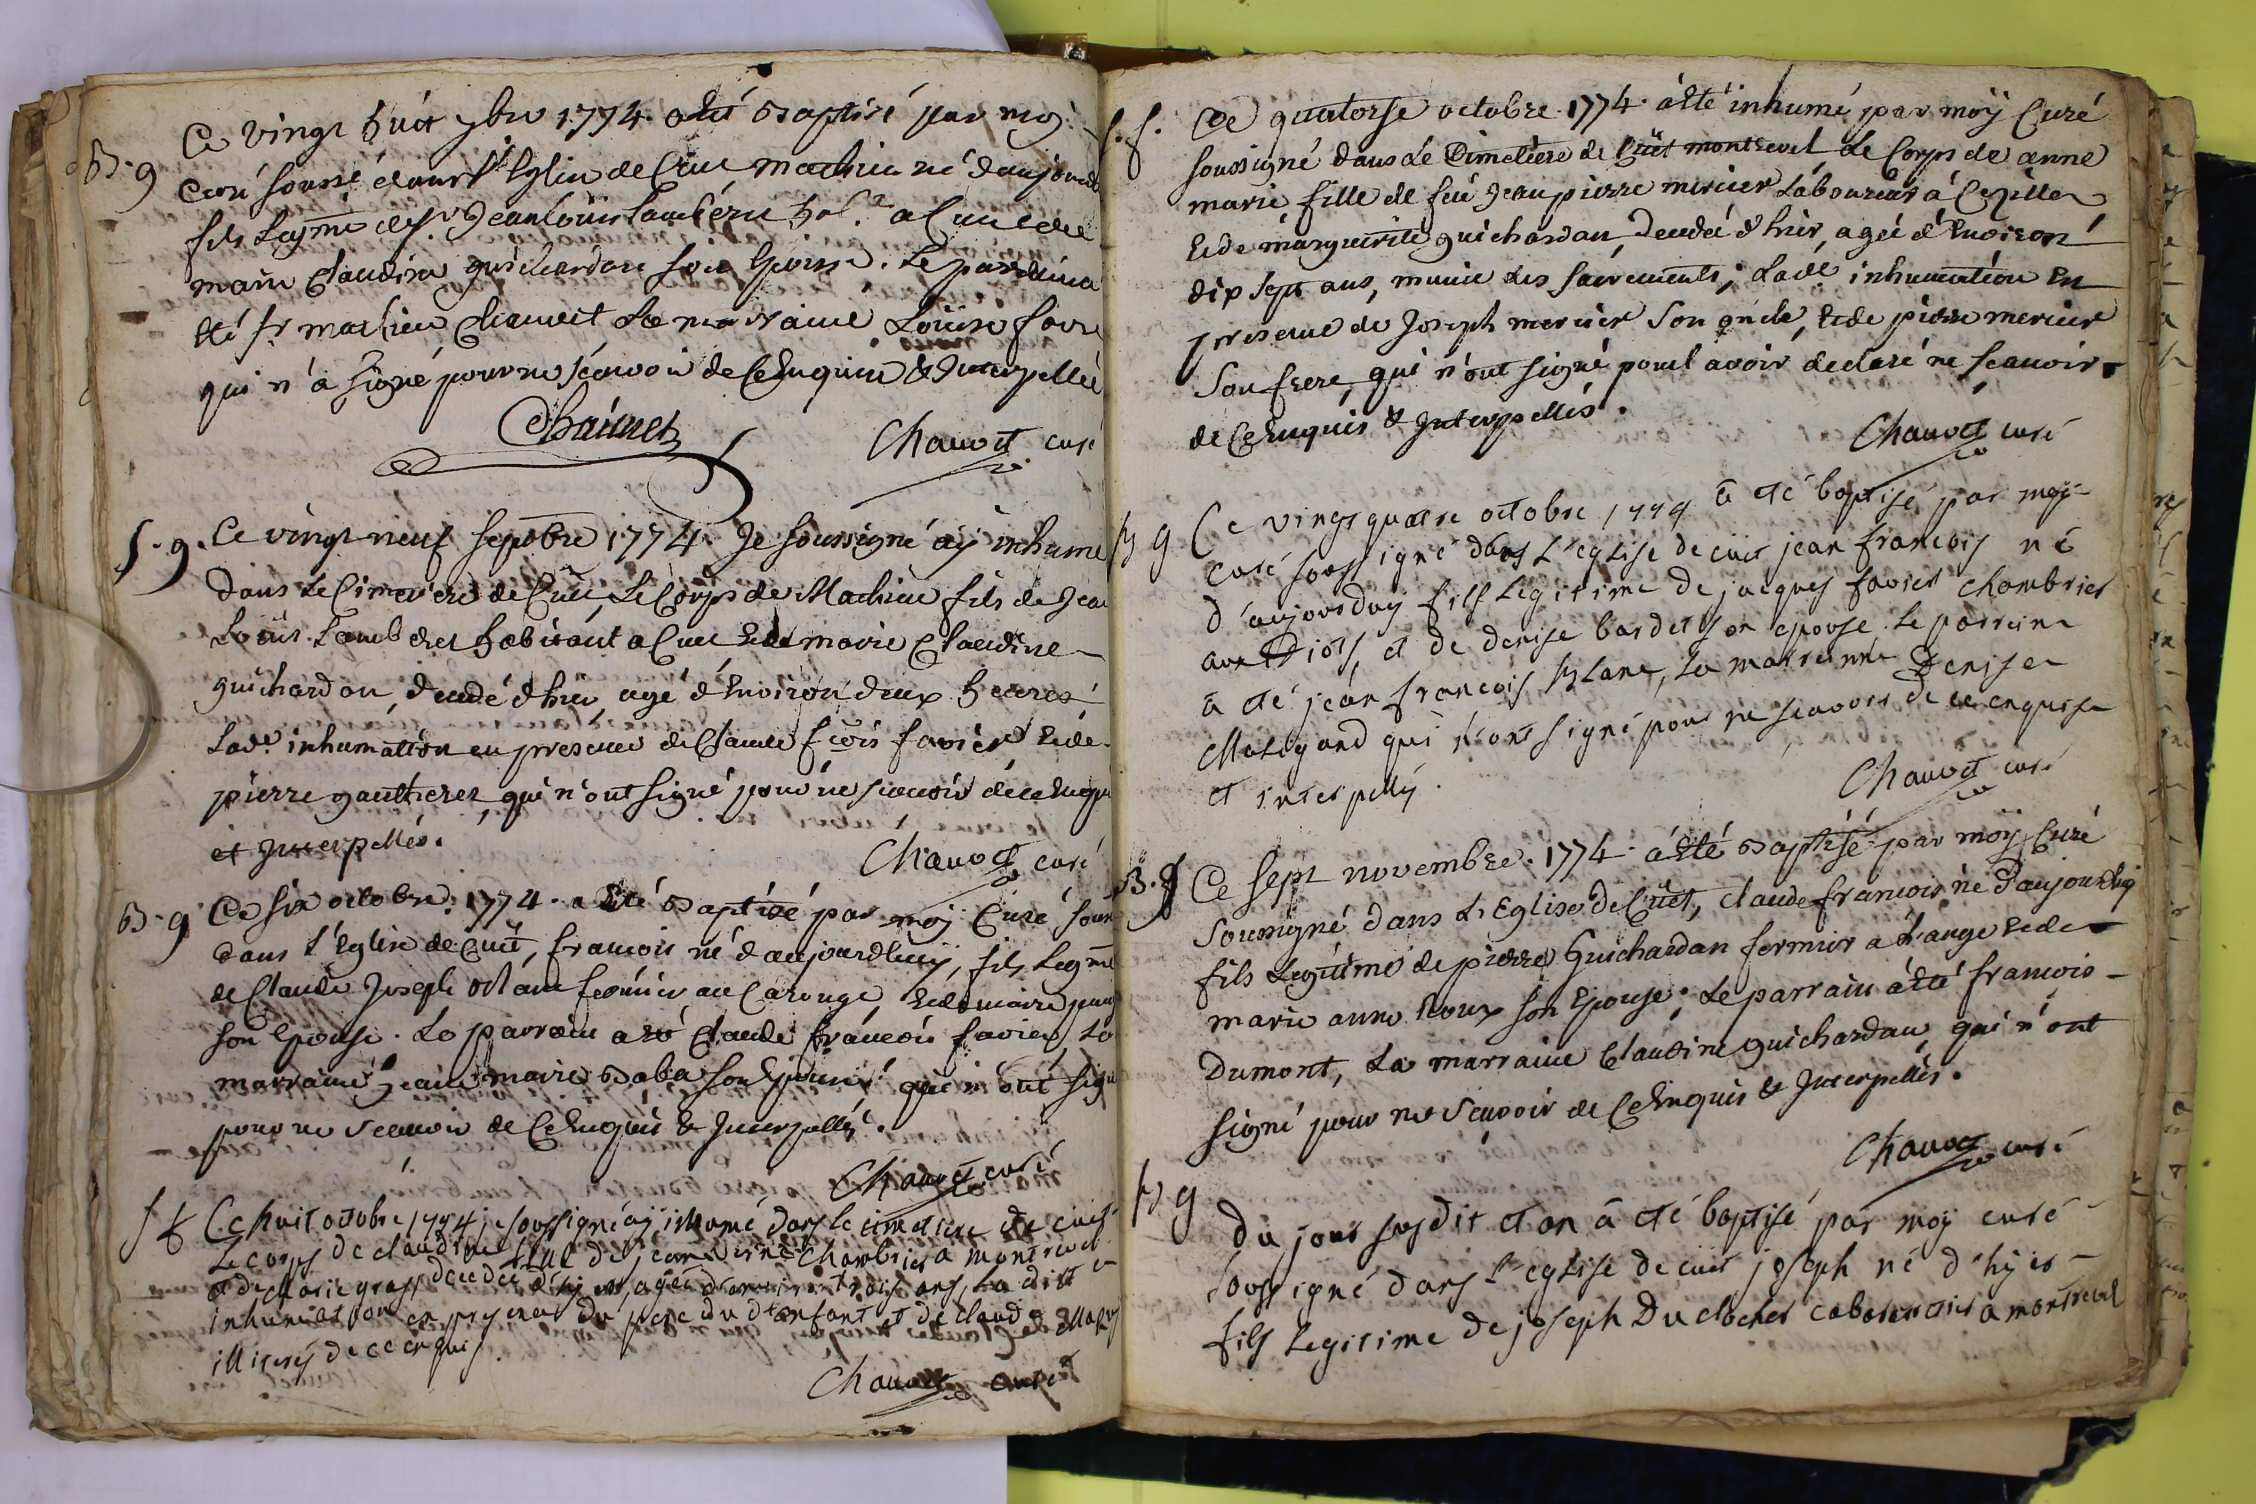 B. g Ce vingt huit 7bre 1774. a été baptisé par moy
curé soussé dans l'Eglise de Cuet mathieu né d'aujourd
fils legme de Sr. Jean Loüis Lambéru a Cuet et de
marie Claudine guichardan son Epouse. Le parrain a
été Sr mathieu Chauvet La marraine Loüise favre
qui n'a signé pour ne sçavoir de ce Enquise & Interpellée
Chauvet
Chauvet curé
S. g. Ce vingt neuf Septbre 1774. Je soussigné ay inhumé
dans le Cimetiere de Cuet, Le Corps de Mathieu fils de Jea
Loüis Lamb habitant a Cuet et de marie Claudine
guichardan, decedé d'hier, agé d'Environ deux heures
Lade. inhumation en presence de Claude fçois favier et de
pierre gauthier, qui n'ont signé pour ne sçavoir de ce Enqu
et Interpellés.
Chauvet curé
B. g Ce six octobre. 1774. a Eté Baptisé par moy Curé sous
dans l'Eglise de Cuet, francois né d'aujourdhuy, fils Legme
de Claude Joseph fermier au Carouge, et de marie
son Epouse. Le parrain a été Claude francois favier, La
marraine Jeanne marie son Epouse, qui n'ont sign
pour ne sçavoir de ce Enquis & Interpellés.
Chauvet curé
S f Ce huit octobre 1774 je soussigné ay inhumé dans le cimetiere de cuet
Le corps de claudine fille de jean chambrier a montrevel
et de marie gras decedée d'hyer, agée d'environ trois ans, La ditte
inhumation en presence du pere du dt enfant et de claude
illiterés de ce enquis
Chauvet curé
S. f. Ce quatorse octobre. 1774. a Eté inhumé par moÿ Curé
soussigné dans Le Cimetiere de Cüet montrevel Le Corps de anne
marie fille de feu Jean pierre mercier Laboureur à Cezille
et de marguerite guichardan, decedée d'hier, agée d'Environ
dix sept ans, munie des sacrements; Lade inhumation En
presence de Joseph mercier son oncle, et de pierre mercier
son frere, qui n'ont signé pour avoir declaré ne sçavoir
de ce Enquis & Interpellés.
Chauvet curé
B g Ce vingt quatre octobre 1774 a eté baptisé par moy
curé soussigné dans l'eglise de cuet jean francois né
d'aujourduy fils Legitime de jacques favier chambrier
aux et de denise bardet son epouse Le parrein
a eté jean francois La marrenne Denise
qui n'ont signé pour ne sçavoir de ce enquise
et interpellés.
Chauvet curé
B. g Ce sept novembre. 1774. a été Baptisé par moÿ Curé
soussigné dans L'Eglise de Cüet, claude francois né d'aujourdhuy
fils Legitime de pierre Guichardan fermier a L'ange et de
marie anne Roux son Epouse; Le parrain a été francois
Dumont, La marraine Claudine guichardan, qui n'ont
signé pour ne sçavoir de ce Enquis & Interpellés.
Chauvet curé
B g Du jour susdit et an a eté baptisé par moy curé
soussigné dans l'eglise de cuet joseph né d'hyer
fils Legitime de joseph Du clocher cabarettier a montrevel